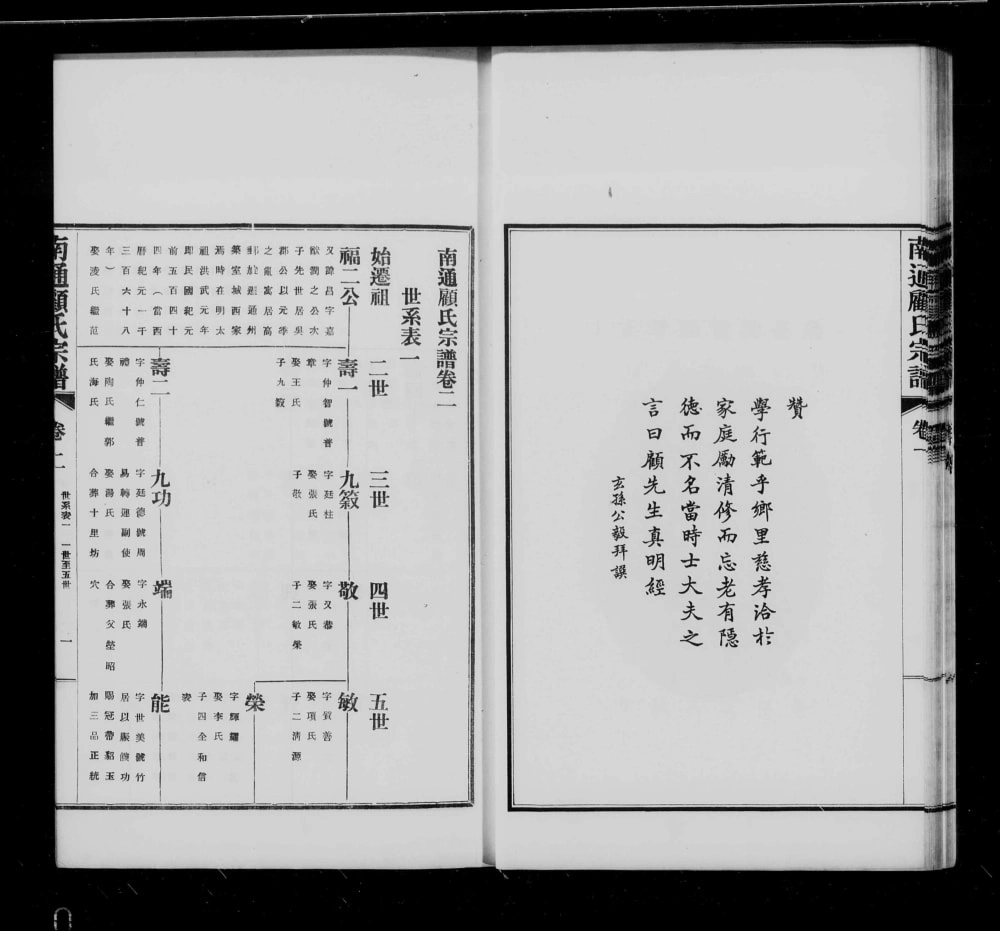 贊
學行範乎鄉里慈孝洽於
家庭勵清修而忘老有隱
德而不名當時士大夫之
言曰顧先生真明經
玄孫公毅拜譔
南通顧氏宗譜
卷一
南通顧氏宗譜卷二
世系表一
始遷祖
福二公
又諱昌字嘉
猷潤之公次
子先世居吳
郡公以元季
之亂寓居高
郵旋遷通州
築室城西家
焉時在明太
祖洪武元年
即民國紀元
前五百四十
四年（當西
曆紀元一千
三百六十八
年）
娶淩氏繼范
二世
壽一
字仲智號普
章
娶王氏
子九敘
壽二
字仲仁號普
禮
娶陶氏繼郭
氏海氏
三世
九敘
字廷柱
娶張氏
子敬
九功
字廷德號周
易轉運副使
娶湯氏
合葬十里坊
四世
敬
字又恭
娶張氏
子二敏榮
端
字永端
娶張氏
合葬父塋昭
穴
五世
敏
字質善
娶項氏
子二清源
榮
字輝耀
娶李氏
子四全和信
能
字世美號竹
居以賑饑功
賜冠帶貂玉
加三品正統
南通顧氏宗譜
卷二
世系表一
一世至五世
一